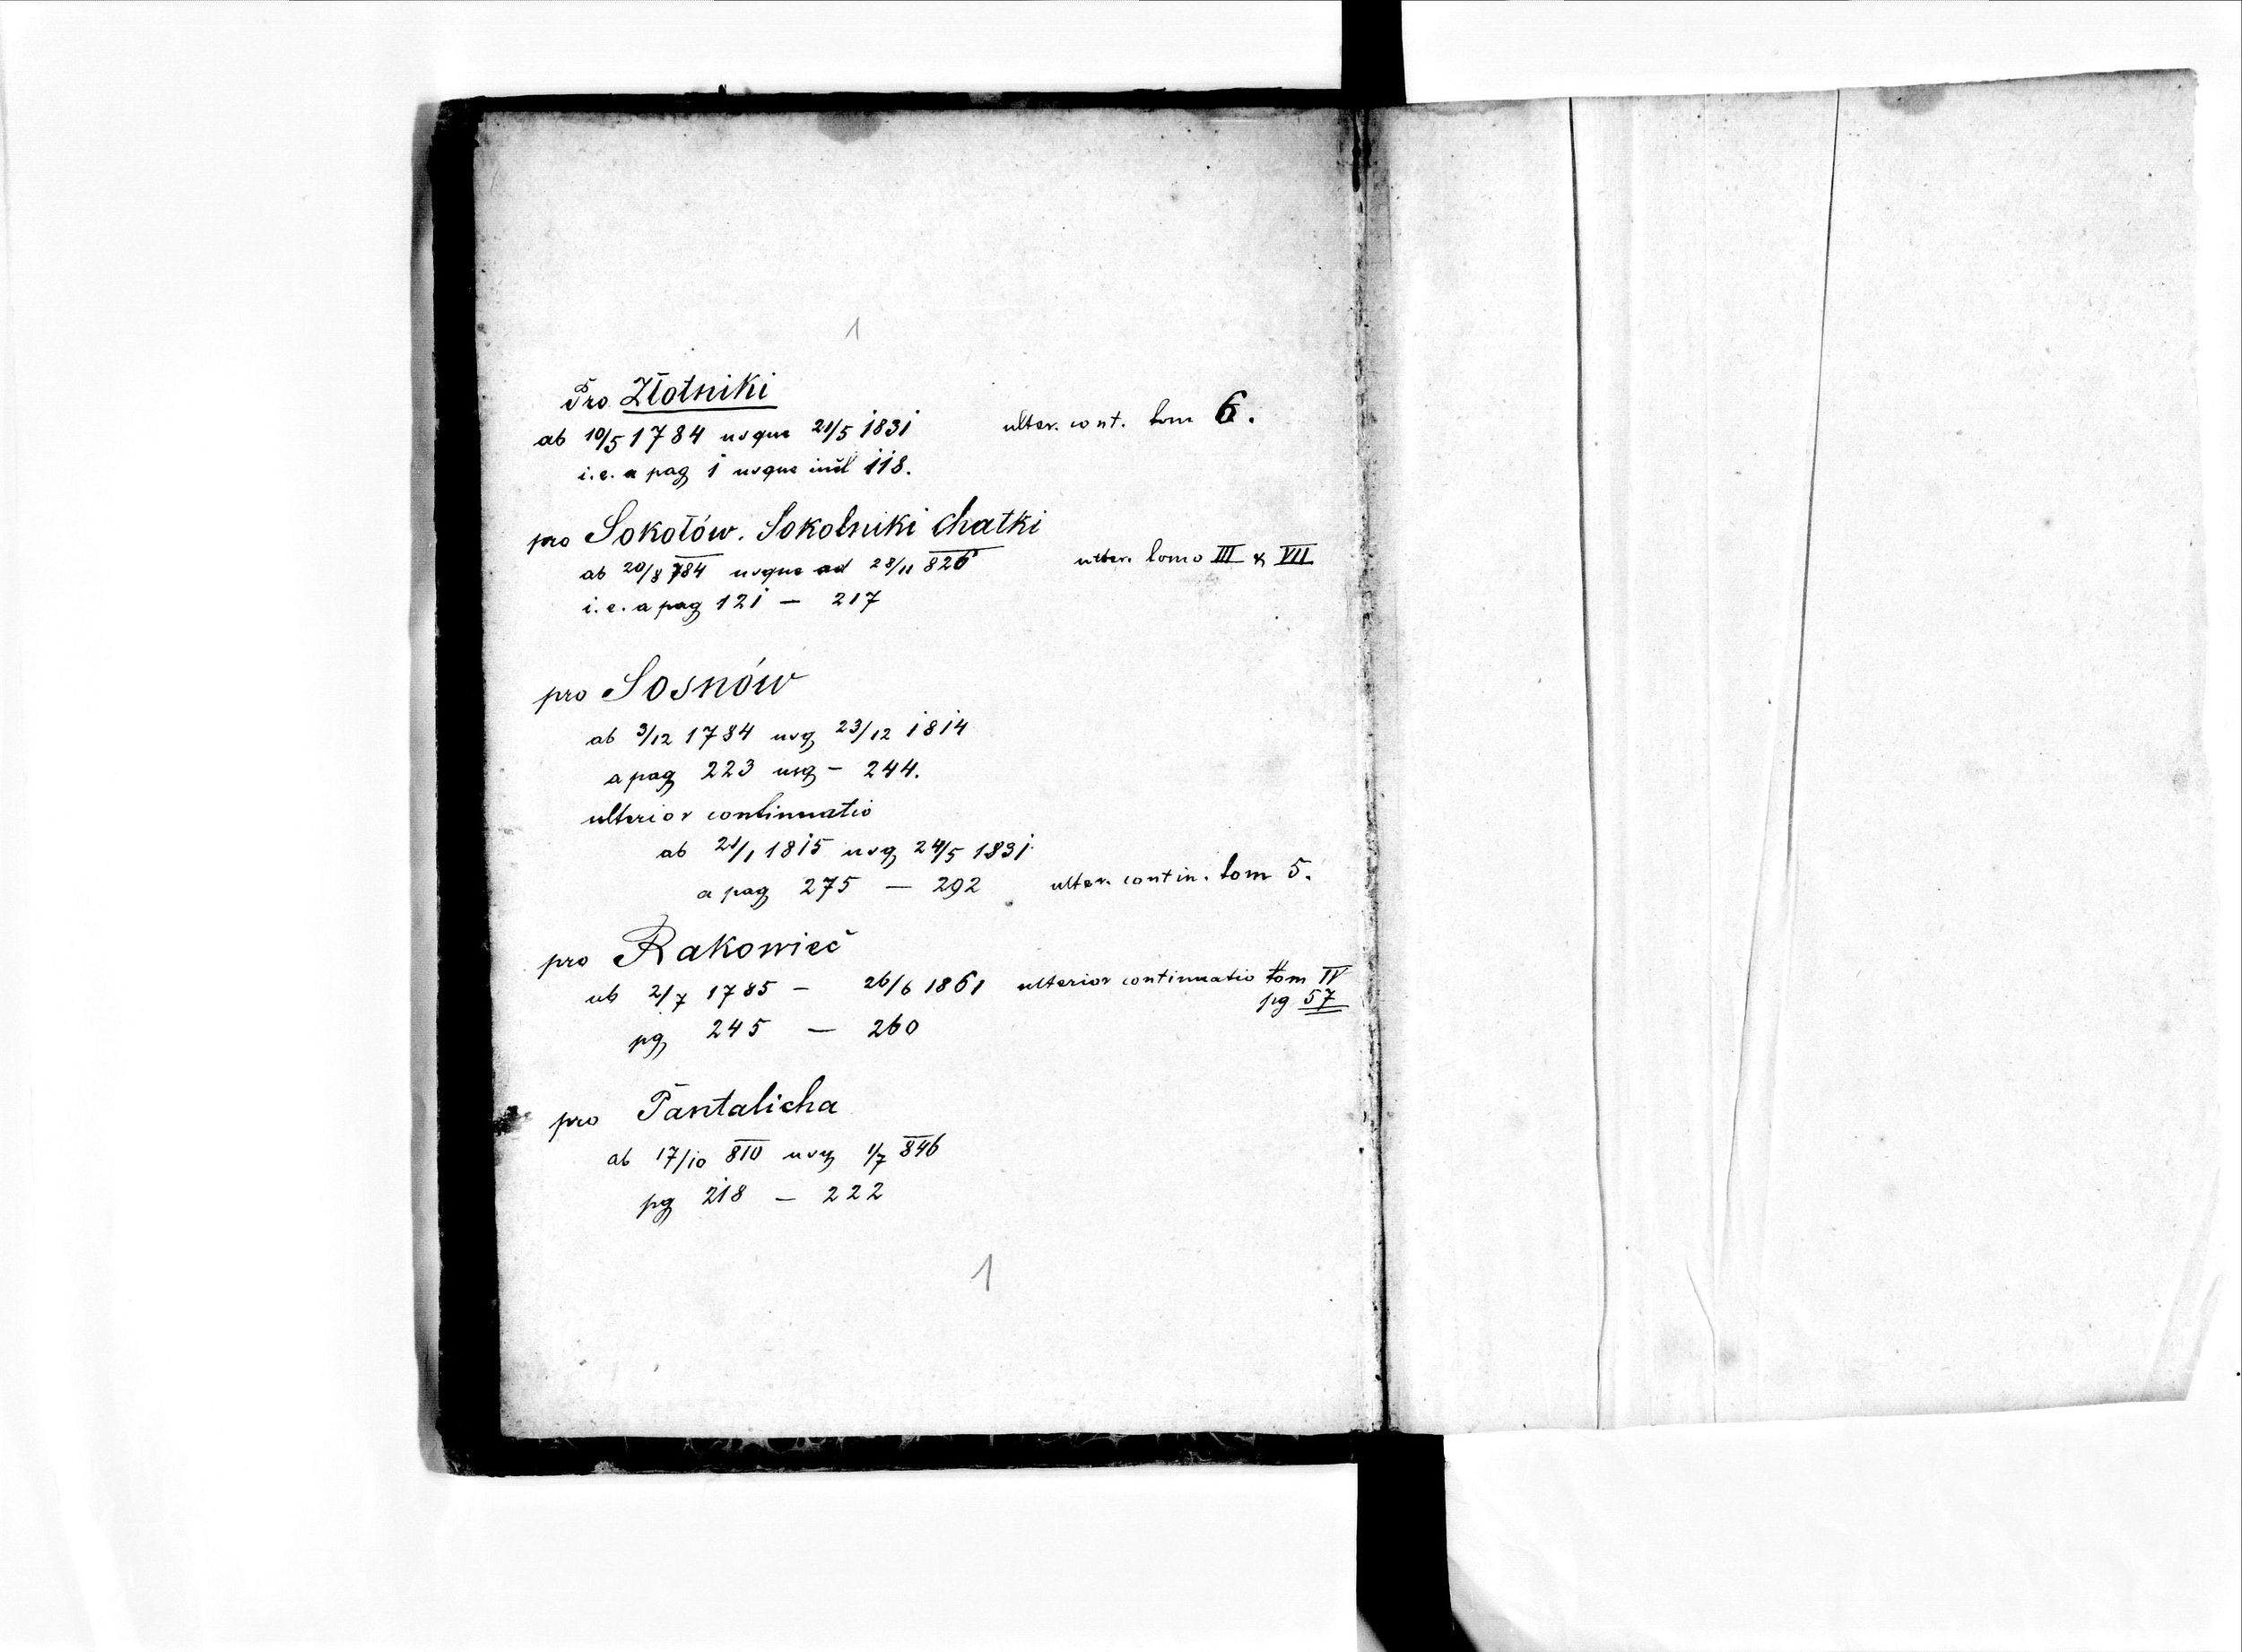 1
Pro Złotniki
ab 10/5 1784 usque 21/5 1831 ulter. cont. tom 6.
i.e. a pag 1 usque incl 118.
pro Sokołów. Sokolniki Chatki
ab 20/8 784 usque ad 28/11 826 ulter. tomo III & VII
i.e. a pag 121 — 217
pro Sosnów
ab 3/12 1784 usq 23/12 1814
a pag 223 usq – 244.
ulterior continuatio
ab 21/1 1815 usq 24/5 1831
a pag 275 — 292 ulter. contin. tom 5.
pro Rakowieć
ab 2/7 1785 – 26/6 1861 ulterior continuatio tom IV
pg 57
pg 245 — 260
pro Pantalicha
ab 17/10 810 usq 1/7 846
pg 218 — 222
1